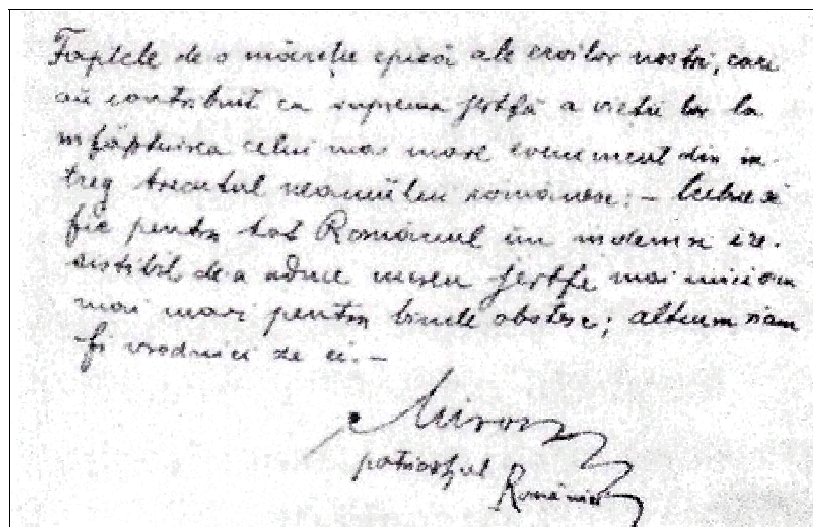 Faptele de o măreție epică ale eroilor nostri, cari
au contribuit cu suprema jertfă a vieții lor la
înfăptuirea celui mai mare eveniment din în-
treg trecutul neamului românesc: – trebue să
fie pentru tot Românul un indemn ire-
sistibil de a aduce mereu jertfe mai mici ori
mai mari pentru binele obștesc; altcum n'am
fi vrednici de ei. –
Miron
patriarhul
României